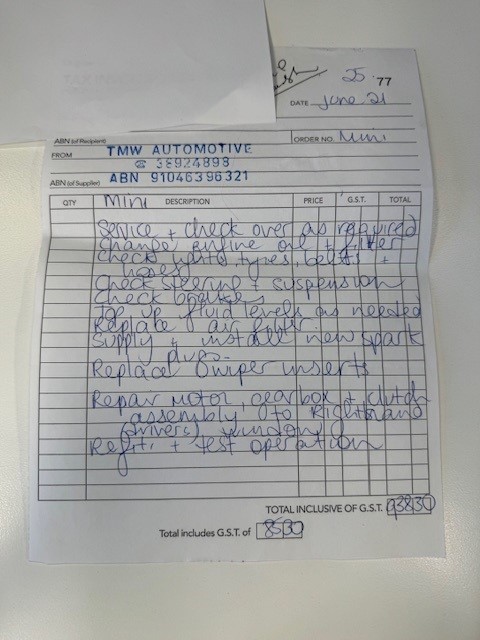 25 77
DATE June 21
ABN (of Recipient)
ORDER NO. Mini
FROM TMW AUTOMOTIVE
☎ 38924898
ABN (of Supplier) ABN 91046396321
QTY DESCRIPTION PRICE G.S.T. TOTAL
Mini
Service + check over as required
Change engine oil + filter
Check lights, tyres, belts +
hoses
Check steering + suspension
Check brakes
Top up fluid levels as needed
Replace air filter
Supply + install new spark
plugs
Replace wiper inserts
Repair motor, gearbox + clutch
assembly to Right hand
(drivers) window
Refit + test operation
TOTAL INCLUSIVE OF G.S.T. 938.30
Total includes G.S.T. of 85.30